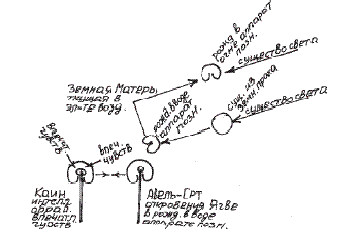 рожд. в
огне аппарат
позн.
существо света
Земная Матерь,
ткущая в
возд.
рожд. в воде
аппарат
позн.
сущ. из
земн. праха
существо света
впеч.
чувств
впеч.
чувств
Каин
интелл.
впечатл.
чувств
Авель-Сет
откровения Ягве
в рожд. в воде
аппарате позн.